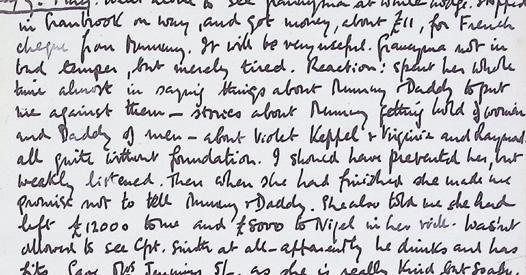 alone to see Grannyma at White Lodge. Stopped
in Cranbrook on way, and got money, about £11, for French
cheque from Mummy. It will be very useful. Grannyma not in
bad temper, but merely tired. Reaction: spent her whole
time almost in saying things about Mummy & Daddy to put
me against them – stories about Mummy getting hold of women
and Daddy of men – about Violet Keppel & Virginia and Raymond.
all quite without foundation. I should have prevented her, but
weakly listened. Then when she had finished she made me
promise not to tell Mummy & Daddy. She also told me she had
left £12000 to me and £8000 to Nigel in her will. Wasn't
allowed to see Cpt. Smith at all – apparently he drinks and has
fits. Gave Mrs Jennings 5/-, as she is really kind but